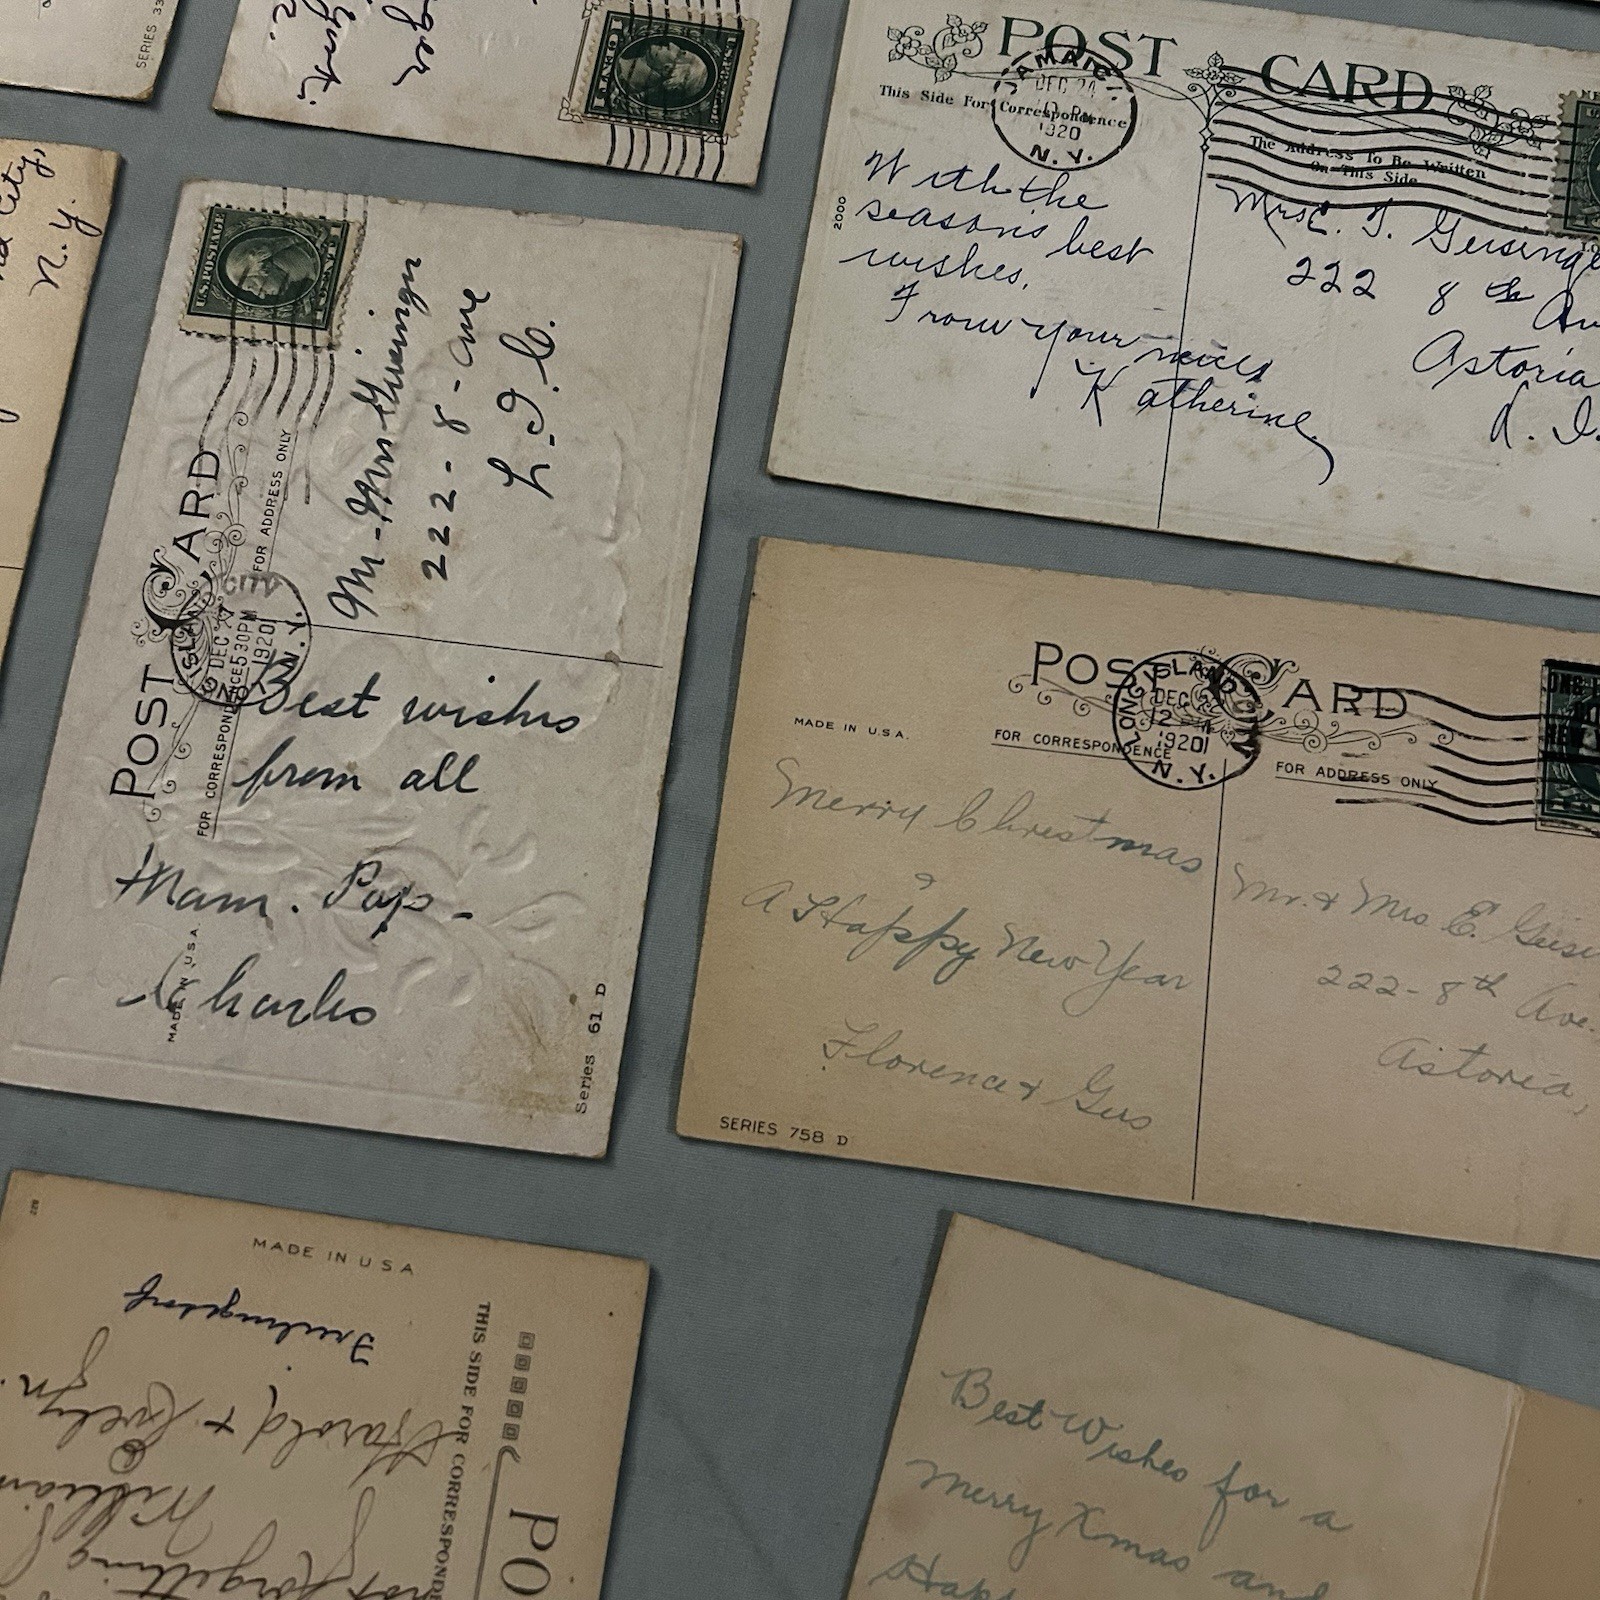 SERIES 33
U.S. POSTAGE
1 CENT 1
City,
N.Y.
POST CARD
JAMAICA
DEC 24
1920
N.Y.
This Side For Correspondence
The Address To Be Written
On This Side
2000
With the
season's best
wishes.
From your niece
Katherine
Mrs E. F. Geisinge
222 8th Av
Astoria
L. I.
U.S. POSTAGE
1 CENT 1
POST CARD
FOR ADDRESS ONLY
FOR CORRESPONDENCE
LONG ISLAND CITY
DEC
5 30 PM
1920
N.Y.
Mr - Mrs Guisinger
222 - 8 - ave
L. I. C.
Best wishes
from all
Mam. Pop -
Charles
MADE IN U.S.A.
Series 61 D
POST CARD
LONG ISLAND CITY
DEC
1920
N.Y.
MADE IN U.S.A.
FOR CORRESPONDENCE
FOR ADDRESS ONLY
Merry Christmas
&
A Happy New Year
Florence & Gus
Mr. & Mrs E. Guisi
222 - 8th Ave.
Astoria,
SERIES 758 D
MADE IN U S A
THIS SIDE FOR CORRESPONDE
PO
Harold & Evelyn.
William
not forgetting
Best Wishes for a
Merry Xmas and
Happ